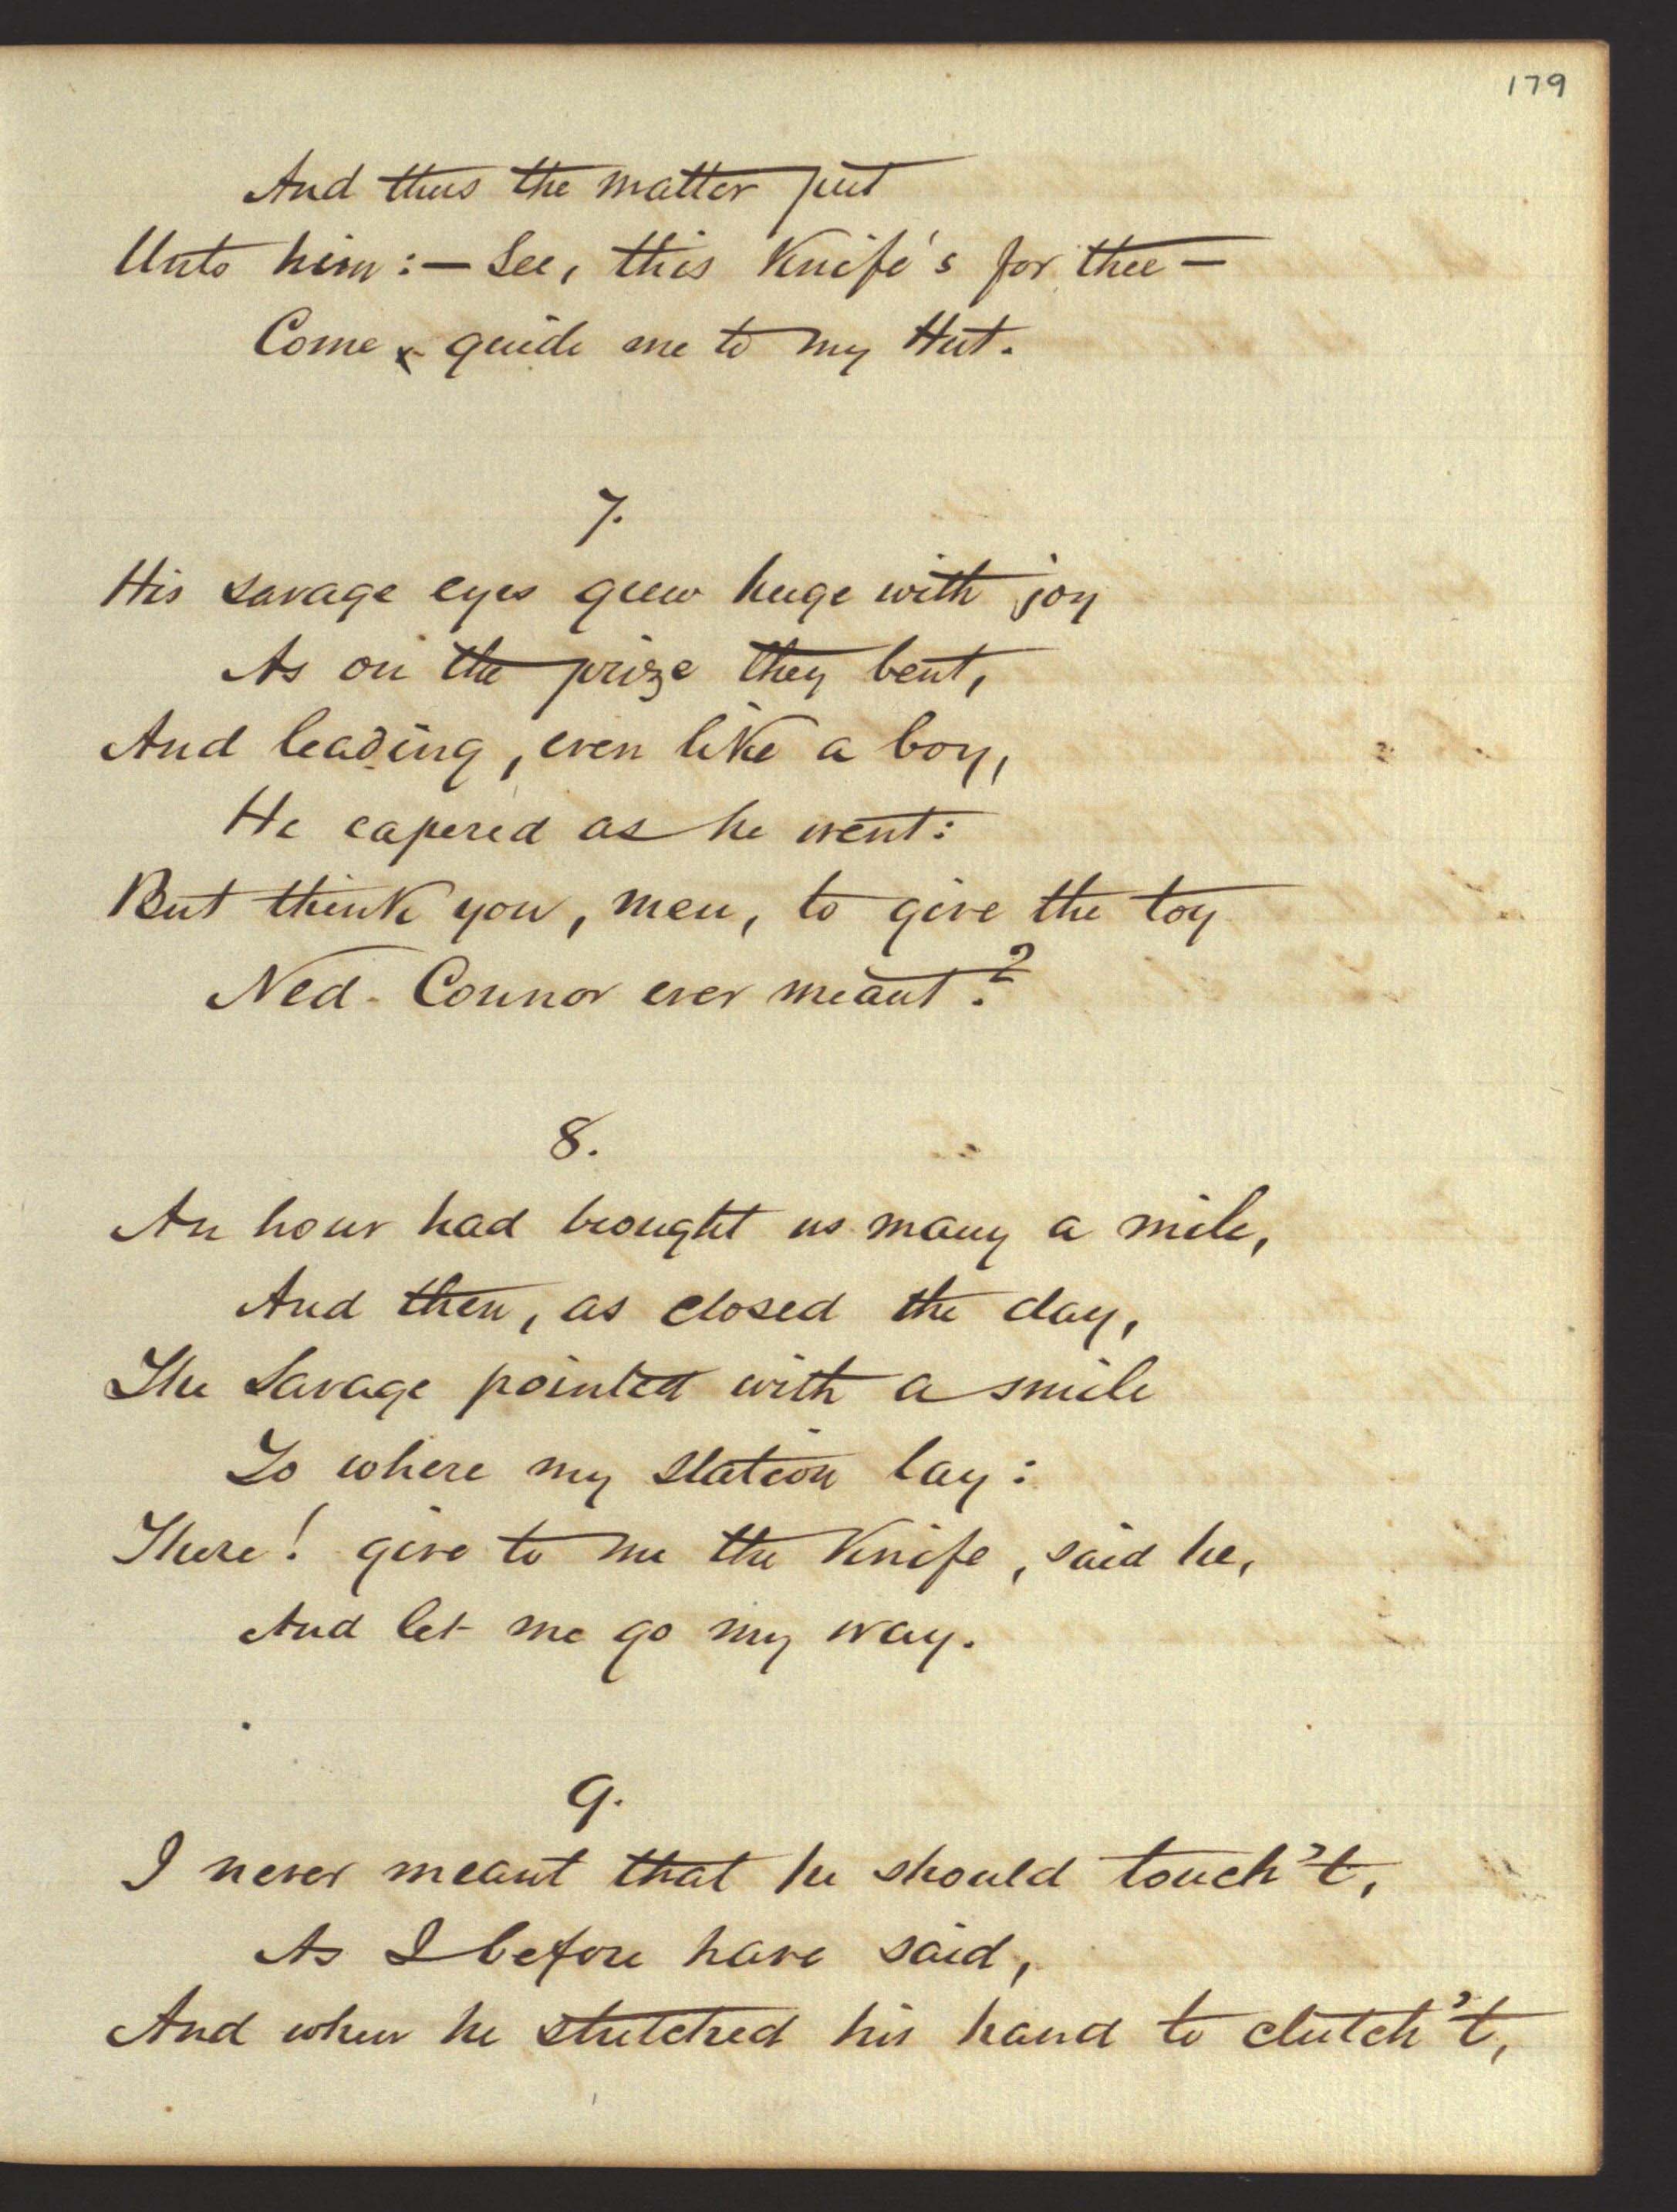 179
And thus the matter put
Unto him:— See, this Knife's for thee —
Come & guide me to my Hut.
7.
His savage eyes grew huge with joy
As on the prize they bent,
And leading, even like a boy,
He capered as he went:
But think you, men, to give the toy
Ned Connor ever meant?
8.
An hour had brought us many a mile,
And then, as closed the day,
The Savage pointed with a smile
To where my station lay:
There! give to me the Knife, said he,
And let me go my way.
9.
I never meant that he should touch't,
As I before have said,
And when he stretched his hand to clutch't,